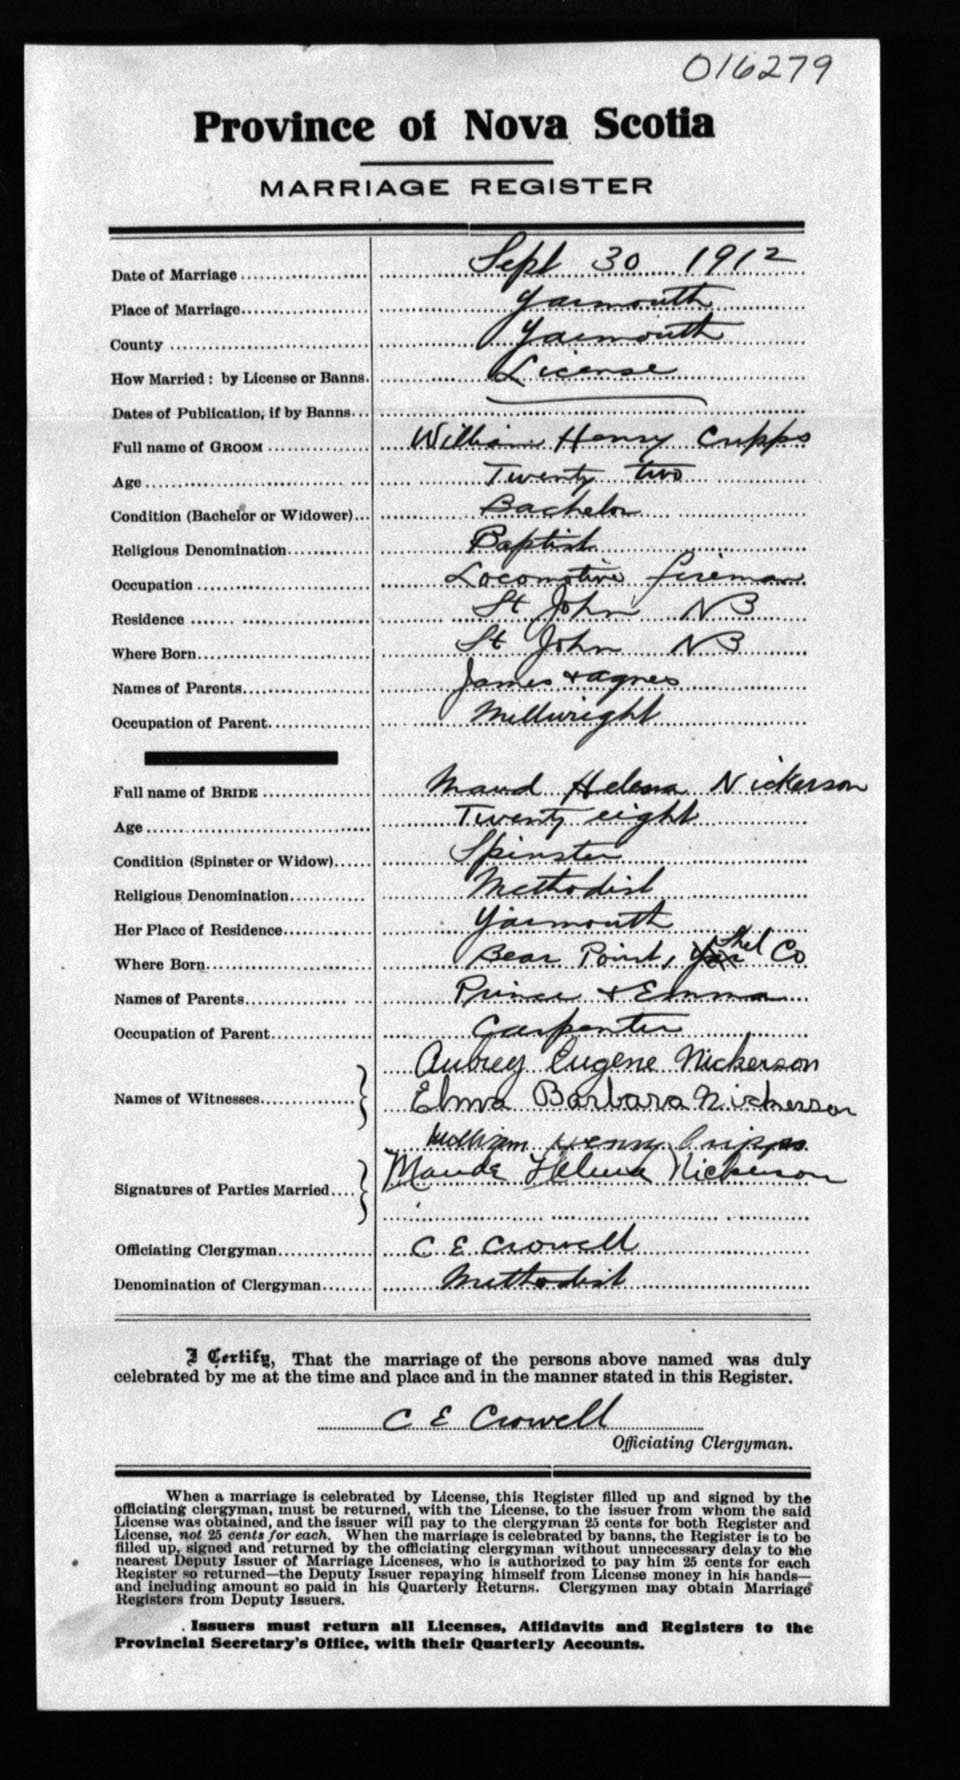 016279
Province of Nova Scotia
MARRIAGE REGISTER
Date of Marriage Sept 30 1912
Place of Marriage Yarmouth
County Yarmouth
How Married: by License or Banns. License
Dates of Publication, if by Banns
Full name of GROOM William Henry Cripps
Age Twenty two
Condition (Bachelor or Widower) Bachelor
Religious Denomination Baptist
Occupation Locomotive fireman
Residence St John NB
Where Born St John NB
Names of Parents James + Agnes
Occupation of Parent Millwright
Full name of BRIDE Maud Helena Nickerson
Age Twenty eight
Condition (Spinster or Widow) Spinster
Religious Denomination Methodist
Her Place of Residence Yarmouth
Where Born Bear Point, Shel Co
Names of Parents Prince + Emma
Occupation of Parent Carpenter
Aubrey Eugene Nickerson
Names of Witnesses Elma Barbara Nickerson
William Henry Cripps
Signatures of Parties Married Maude Helena Nickerson
Officiating Clergyman C E Crowell
Denomination of Clergyman Methodist
I Certify, That the marriage of the persons above named was duly
celebrated by me at the time and place and in the manner stated in this Register.
C E Crowell
Officiating Clergyman.
When a marriage is celebrated by License, this Register filled up and signed by the
officiating clergyman, must be returned, with the License, to the issuer from whom the said
License was obtained, and the issuer will pay to the clergyman 25 cents for both Register and
License, not 25 cents for each. When the marriage is celebrated by banns, the Register is to be
filled up, signed and returned by the officiating clergyman without unnecessary delay to the
nearest Deputy Issuer of Marriage Licenses, who is authorized to pay him 25 cents for each
Register so returned—the Deputy Issuer repaying himself from License money in his hands—
and including amount so paid in his Quarterly Returns. Clergymen may obtain Marriage
Registers from Deputy Issuers.
Issuers must return all Licenses, Affidavits and Registers to the
Provincial Secretary's Office, with their Quarterly Accounts.